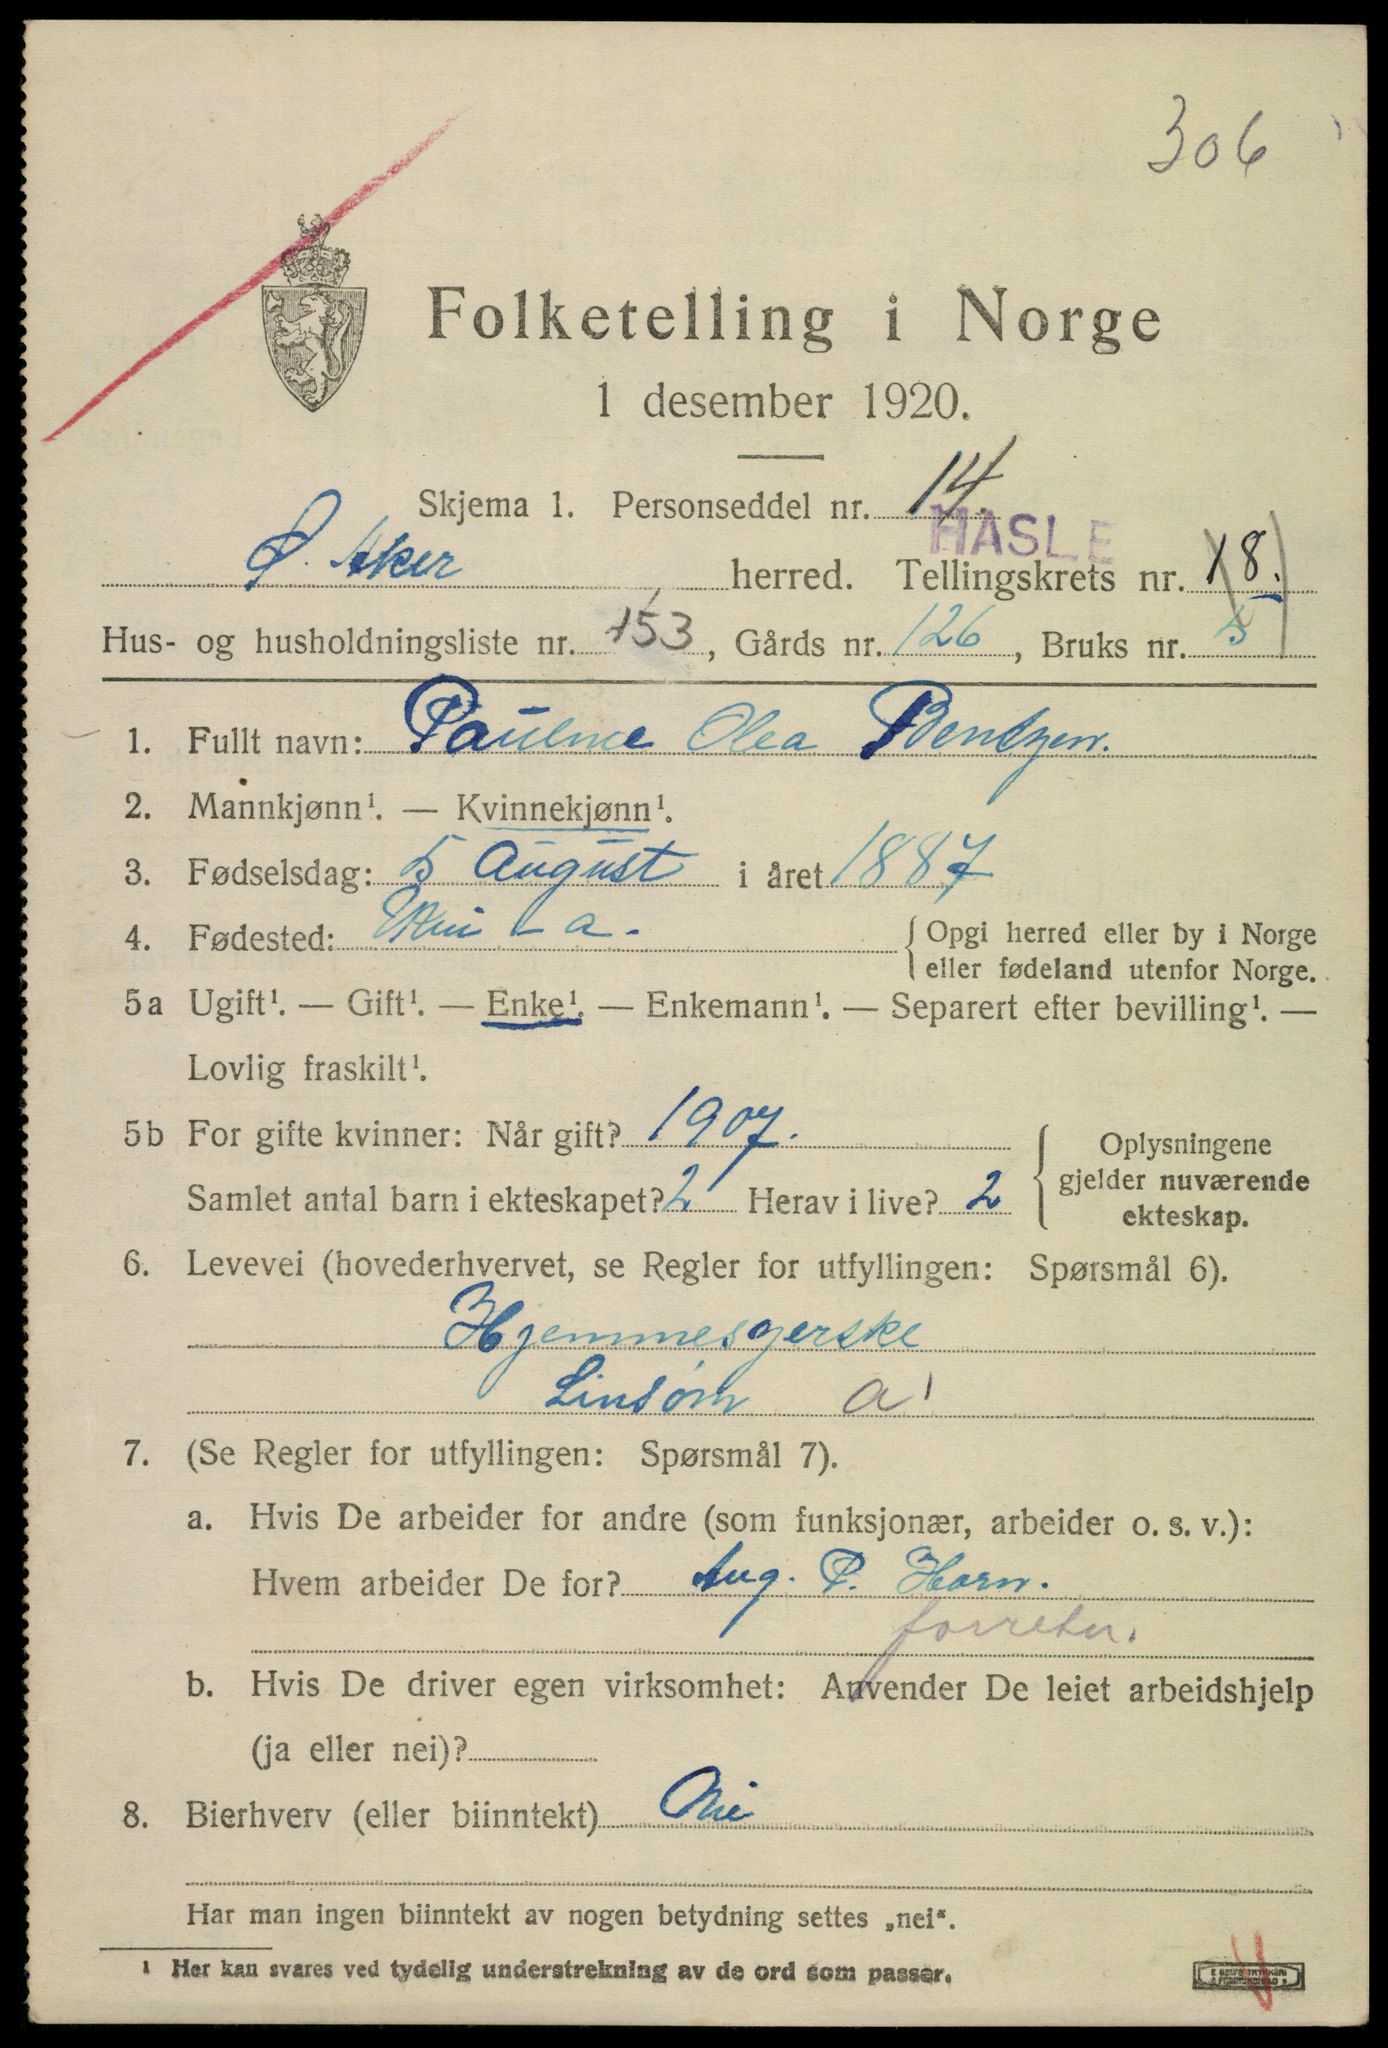 306
Folketelling i Norge
1 desember 1920.
Skjema 1. Personseddel nr. 14.
HASLE
Ø. Aker herred. Tellingskrets nr. 18.
Hus- og husholdningsliste nr. 153, Gårds nr. 126, Bruks nr. 5
1. Fullt navn: Pauline Olea Bentzen.
2. Mannkjønn¹. — Kvinnekjønn¹.
3. Fødselsdag: 5 August i året 1887
4. Fødested: a. { Opgi herred eller by i Norge
eller fødeland utenfor Norge.
5a Ugift¹. — Gift¹. — Enke¹. — Enkemann¹. — Separert efter bevilling¹. —
Lovlig fraskilt¹.
5b For gifte kvinner: Når gift? 1907.
Samlet antal barn i ekteskapet? 2 Herav i live? 2
{ Oplysningene
gjelder nuværende
ekteskap.
6. Levevei (hovederhvervet, se Regler for utfyllingen: Spørsmål 6).
Hjemmesyerske
Linsøm a¹
7. (Se Regler for utfyllingen: Spørsmål 7).
a. Hvis De arbeider for andre (som funksjonær, arbeider o. s. v.):
Hvem arbeider De for? Aug. P. Horn.
forretn.
b. Hvis De driver egen virksomhet: Anvender De leiet arbeidshjelp
(ja eller nei)?
8. Bierhverv (eller biinntekt) Nei
Har man ingen biinntekt av nogen betydning settes „nei“.
¹ Her kan svares ved tydelig understrekning av de ord som passer.